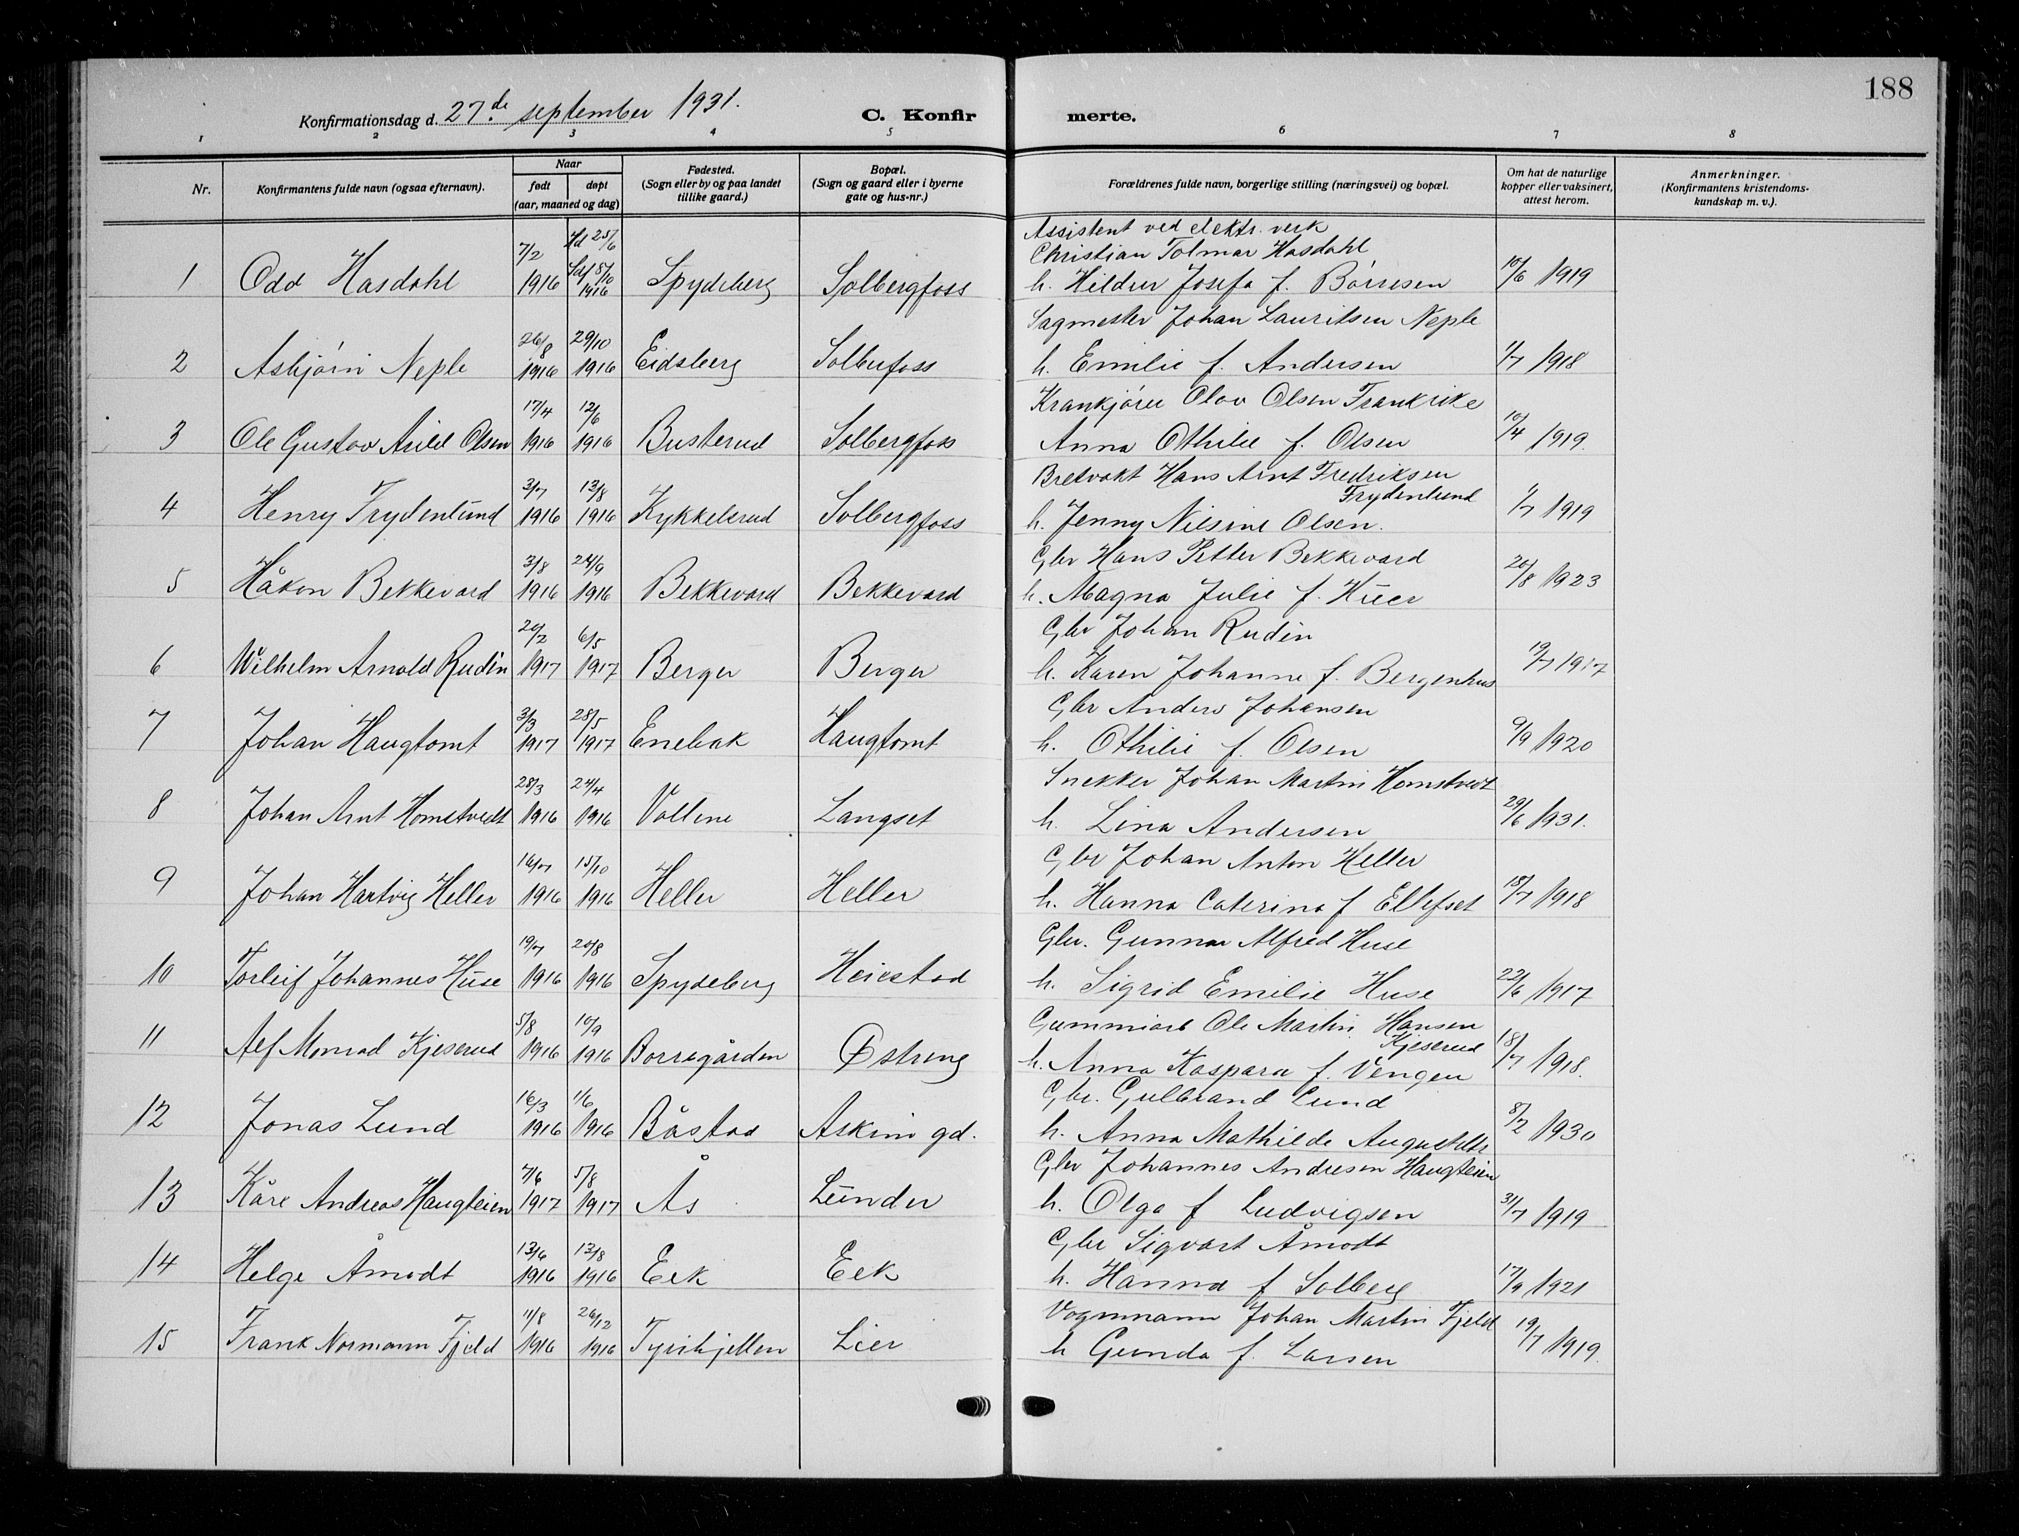 188
Konfirmationsdag d. 27de september 1931. C. Konfirmerte.
1 2 3 4 5 6 7 8
Nr. Konfirmantens fulde navn (ogsaa efternavn). Naar født døpt (aar, maaned og dag) Fødested. (Sogn eller by og paa landet tillike gaard.) Bopæl. (Sogn og gaard eller i byerne gate og hus-nr.) Forældrenes fulde navn, borgerlige stilling (næringsvei) og bopæl. Om hat de naturlige kopper eller vaksinert, attest herom. Anmerkninger. (Konfirmantens kristendomskundskap m. v.).
Assistent ved elektr. verk
7/2 Hd 25/6 Christian Tolmar Hasdahl
1 Odd Hasdahl 1916 8/10 1916 Spydeberg Solbergfoss h. Hildur Josefa f. Børresen 10/6 1919
26/8 29/10 Sagmester Johan Lauritsen Neple
2 Asbjørn Neple 1916 1916 Eidsberg Solberfoss h. Emilie f. Andersen 11/7 1918
17/4 12/6 Krankjører Olav Olsen Frankrike
3 Ole Gustav Arild Olsen 1916 1916 Busterud Solbergfoss Anna Othilie f. Olsen 10/4 1919.
3/7 13/8 Bretvakt Hans Arnt Fredriksen Frydenlund
4 Henry Frydenlund 1916 1916 Kykkelsrud Solbergfoss h. Jenny Nilsine Olsen. 1/7 1919
3/8 24/9 Gbr Hans Petter Bekkevard
5 Håkon Bekkevard 1916 1916 Bekkevard Bekkevard h. Magna Julie f. Huer 20/8 1923
20/2 6/5 Gbr Johan Rudin
6 Wilhelm Arnold Rudin 1917 1917 Berger Berger h. Karen Johanne f. Bergenhus 19/7 1917
3/3 28/5 Gbr Anders Johansen
7 Johan Haugtomt 1917 1917 Enebak Haugtomt h. Othilie f. Olsen 9/9 1920
28/3 24/4 Snekker Johan Martin Homstvedt
8 Johan Arnt Homstvedt 1916 1916 Vollene Langset h. Lina Andersen 29/6 1931.
16/7 15/10 Gbr Johan Anton Heller
9 Johan Hartvig Heller 1916 1916 Heller Heller h. Hanna Caterina f Ellefset 18/7 1918
19/7 20/8 Gbr. Gunnar Alfred Huse
10 Torleif Johannes Huse 1916 1916 Spydeberg Heiestad h. Sigrid Emilie Huse 22/6 1917
5/8 10/9 Gummiarb Ole Martin Hansen Kjeserud
11 Alf Monrad Kjeserud 1916 1916 Borregården Østreng h. Anna Kaspara f. Vengen 18/7 1918.
16/3 1/6 Gbr. Gulbrand Lund
12 Jonas Lund 1916 1916 Båstad Askim gd. h. Anna Mathilde 8/2 1930
7/6 5/8 Gbr Johannes Andresen Haugteien
13 Kåre Andreas Haugteien 1917 1917 Ås Lunder h. Olga f Ludvigsen 31/7 1919
13/6 13/8 Gbr Sigvart Åmodt
14 Helge Åmodt 1916 1916 Eek Eek h. Hanna f Solberg 17/9 1921
11/8 26/12 Vognmann Johan Martin Fjeld
15 Frank Normann Fjeld 1916 1916 Tyrihjellen Lier h Gunda f. Larsen 19/7 1919.